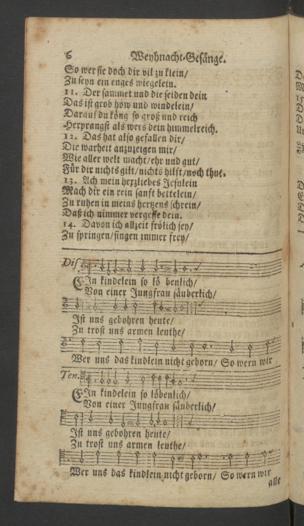 6 Weyhnacht-Gesänge.
So wer sie doch dir vil zu klein/
Zu seyn ein enges wiegelein.
11. Der sammet und die seiden dein
Das ist grob how und windelein/
Darauf du köng so groß und reich
Herprangst als wers dein himmelreich.
12. Das hat also gefallen dir/
Die warheit anzuzeigen mir/
Wie aller welt macht/ehr und gut/
Für dir nichts gilt/nichts hilft/noch thut.
13. Ach mein herzliebes Jesulein
Mach dir ein rein sanft bettelein/
Zu ruhen in meins herzens schrein/
Daß ich nimmer vergesse dein.
14. Davon ich allzeit frölich sey/
Zu springen/singen immer frey/
Dis.
Ein kindelein so lö benlich/
Von einer Jungfrau säuberlich/
Ist uns gebohren heute/
Zu trost uns armen leuthe/
Wer uns das kindlein nicht geborn/ So wern wir
Ten.
Ein kindelein so löbenlich/
Von einer Jungfrau säuberlich/
Ist uns gebohren heute/
Zu trost uns armen leuthe/
Wer uns das kindlein nicht geborn/ So wern wir
alle